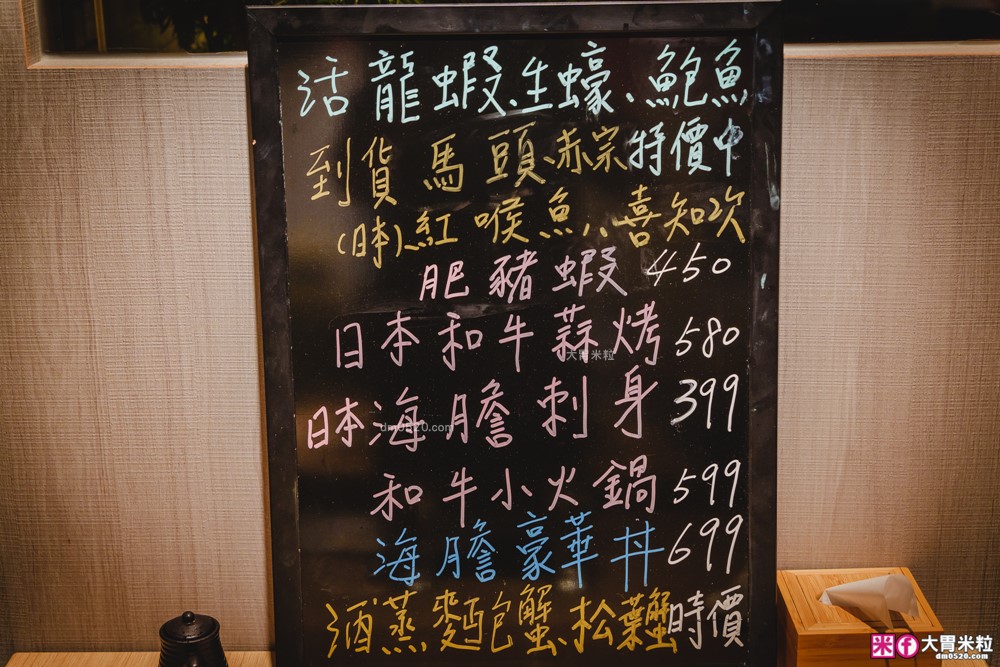 活龍蝦、生蠔、鮑魚
到貨 馬頭、赤宗 特價中
(日本)、紅喉魚、喜知次
肥豬蝦 450
日本和牛蒜烤 580
大胃米粒
日本海膽刺身 399
dm0520.com
和牛小火鍋 599
海膽豪華丼 699
酒蒸麵包蟹、松葉蟹 時價
大胃米粒
dm0520.com